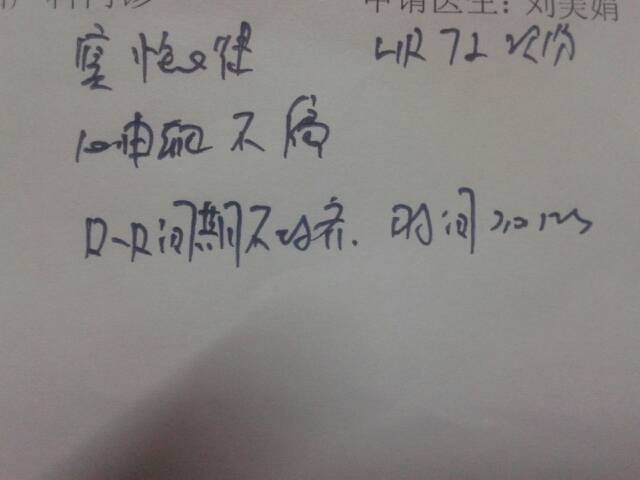 产科门诊 申请医生: 刘美娟
窦性心律 HR 72次/分
心电轴不偏
间期不均齐. 时间>0.12s